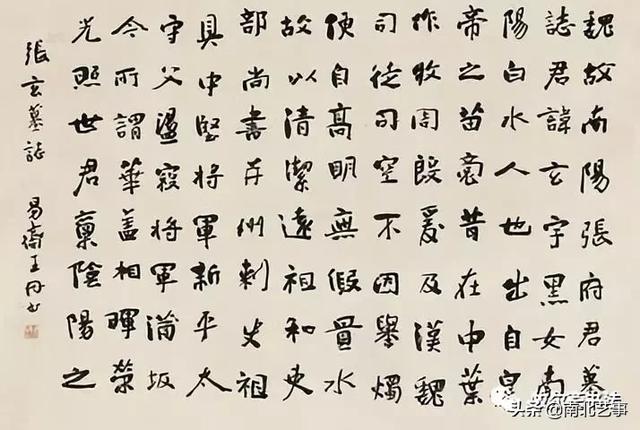 魏故南陽張府君墓
誌君諱玄字黑女南
陽白水人也出自皇
帝之苗裔昔在中葉
作牧周殷爰及漢魏
司徒司空不因舉燭
便自高明無假置水
故以清潔遠祖和吏
部尚書并州刺史祖
具中堅將軍新平太
守父盪寇將軍蒲坂
令所謂華蓋相暉榮
光照世君稟陰陽之
張玄墓誌
易齋王丹书
头条@南北艺事